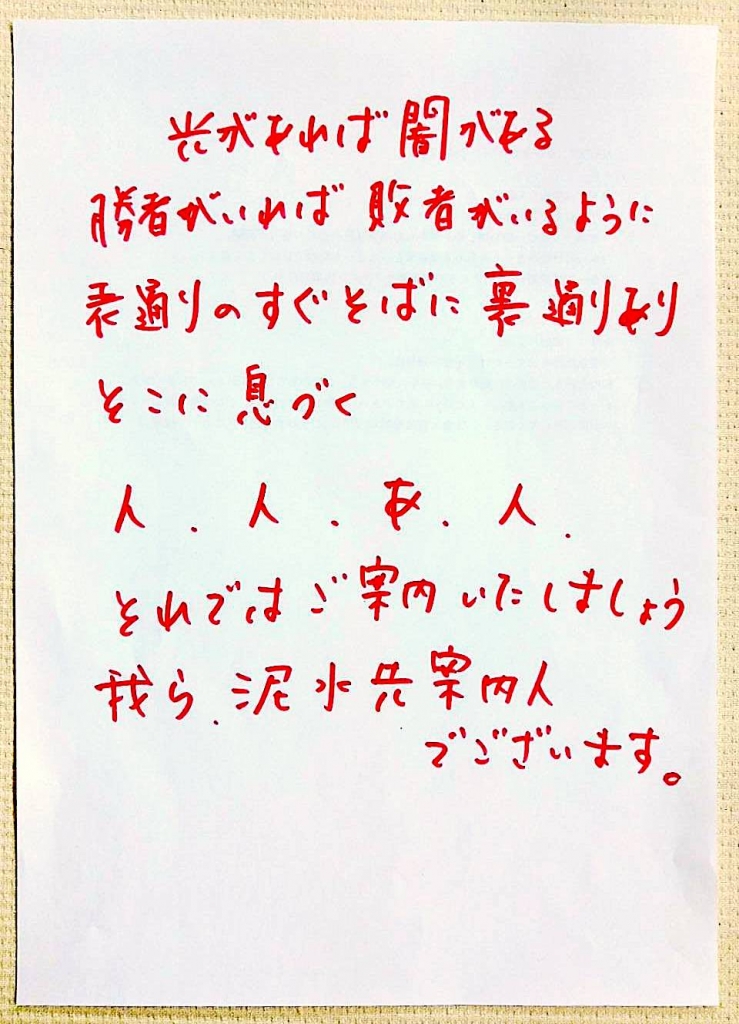 光があれば闇がある
勝者がいれば敗者がいるように
表通りのすぐそばに裏通りあり
そこに息づく
人、人、あ、人、
それではご案内いたしましょう
我ら、泥水先案内人
でございます。